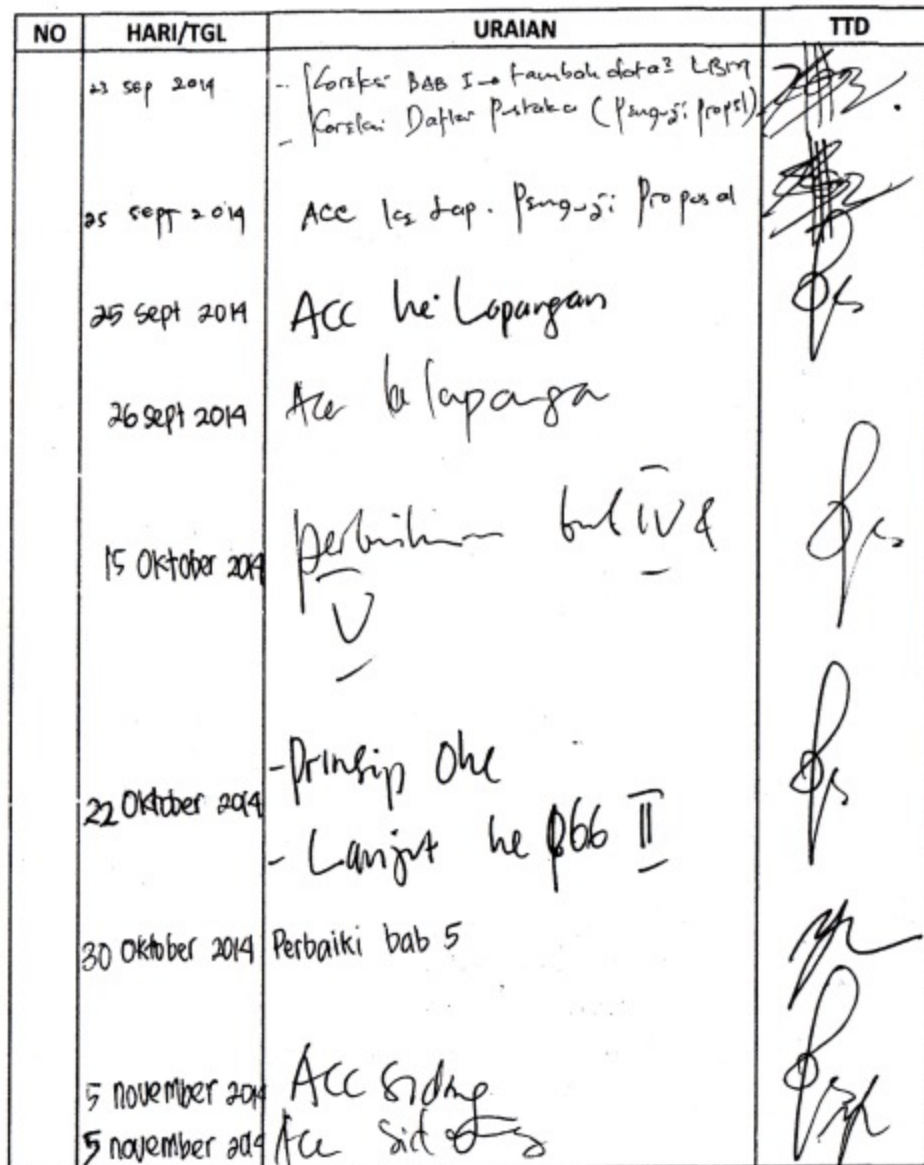 NO HARI/TGL URAIAN TTD
23 Sep 2014 - Koreksi BAB I → tambah data2 LBM
- Koreksi Daftar Pustaka (Penguji propsl)
25 sept 2014 Acc ke dap. Penguji Proposal
25 Sept 2014 Acc ke Lapangan
26 sept 2014 Acc ke lapanga
15 Oktober 2014 perbaikan bab IV &
V
22 Oktober 2014 - Prinsip Oke
- Lanjut ke pbb II
30 Oktober 2014 Perbaiki bab 5
5 november 2014 Acc sidang
5 november 2014 Acc sidang